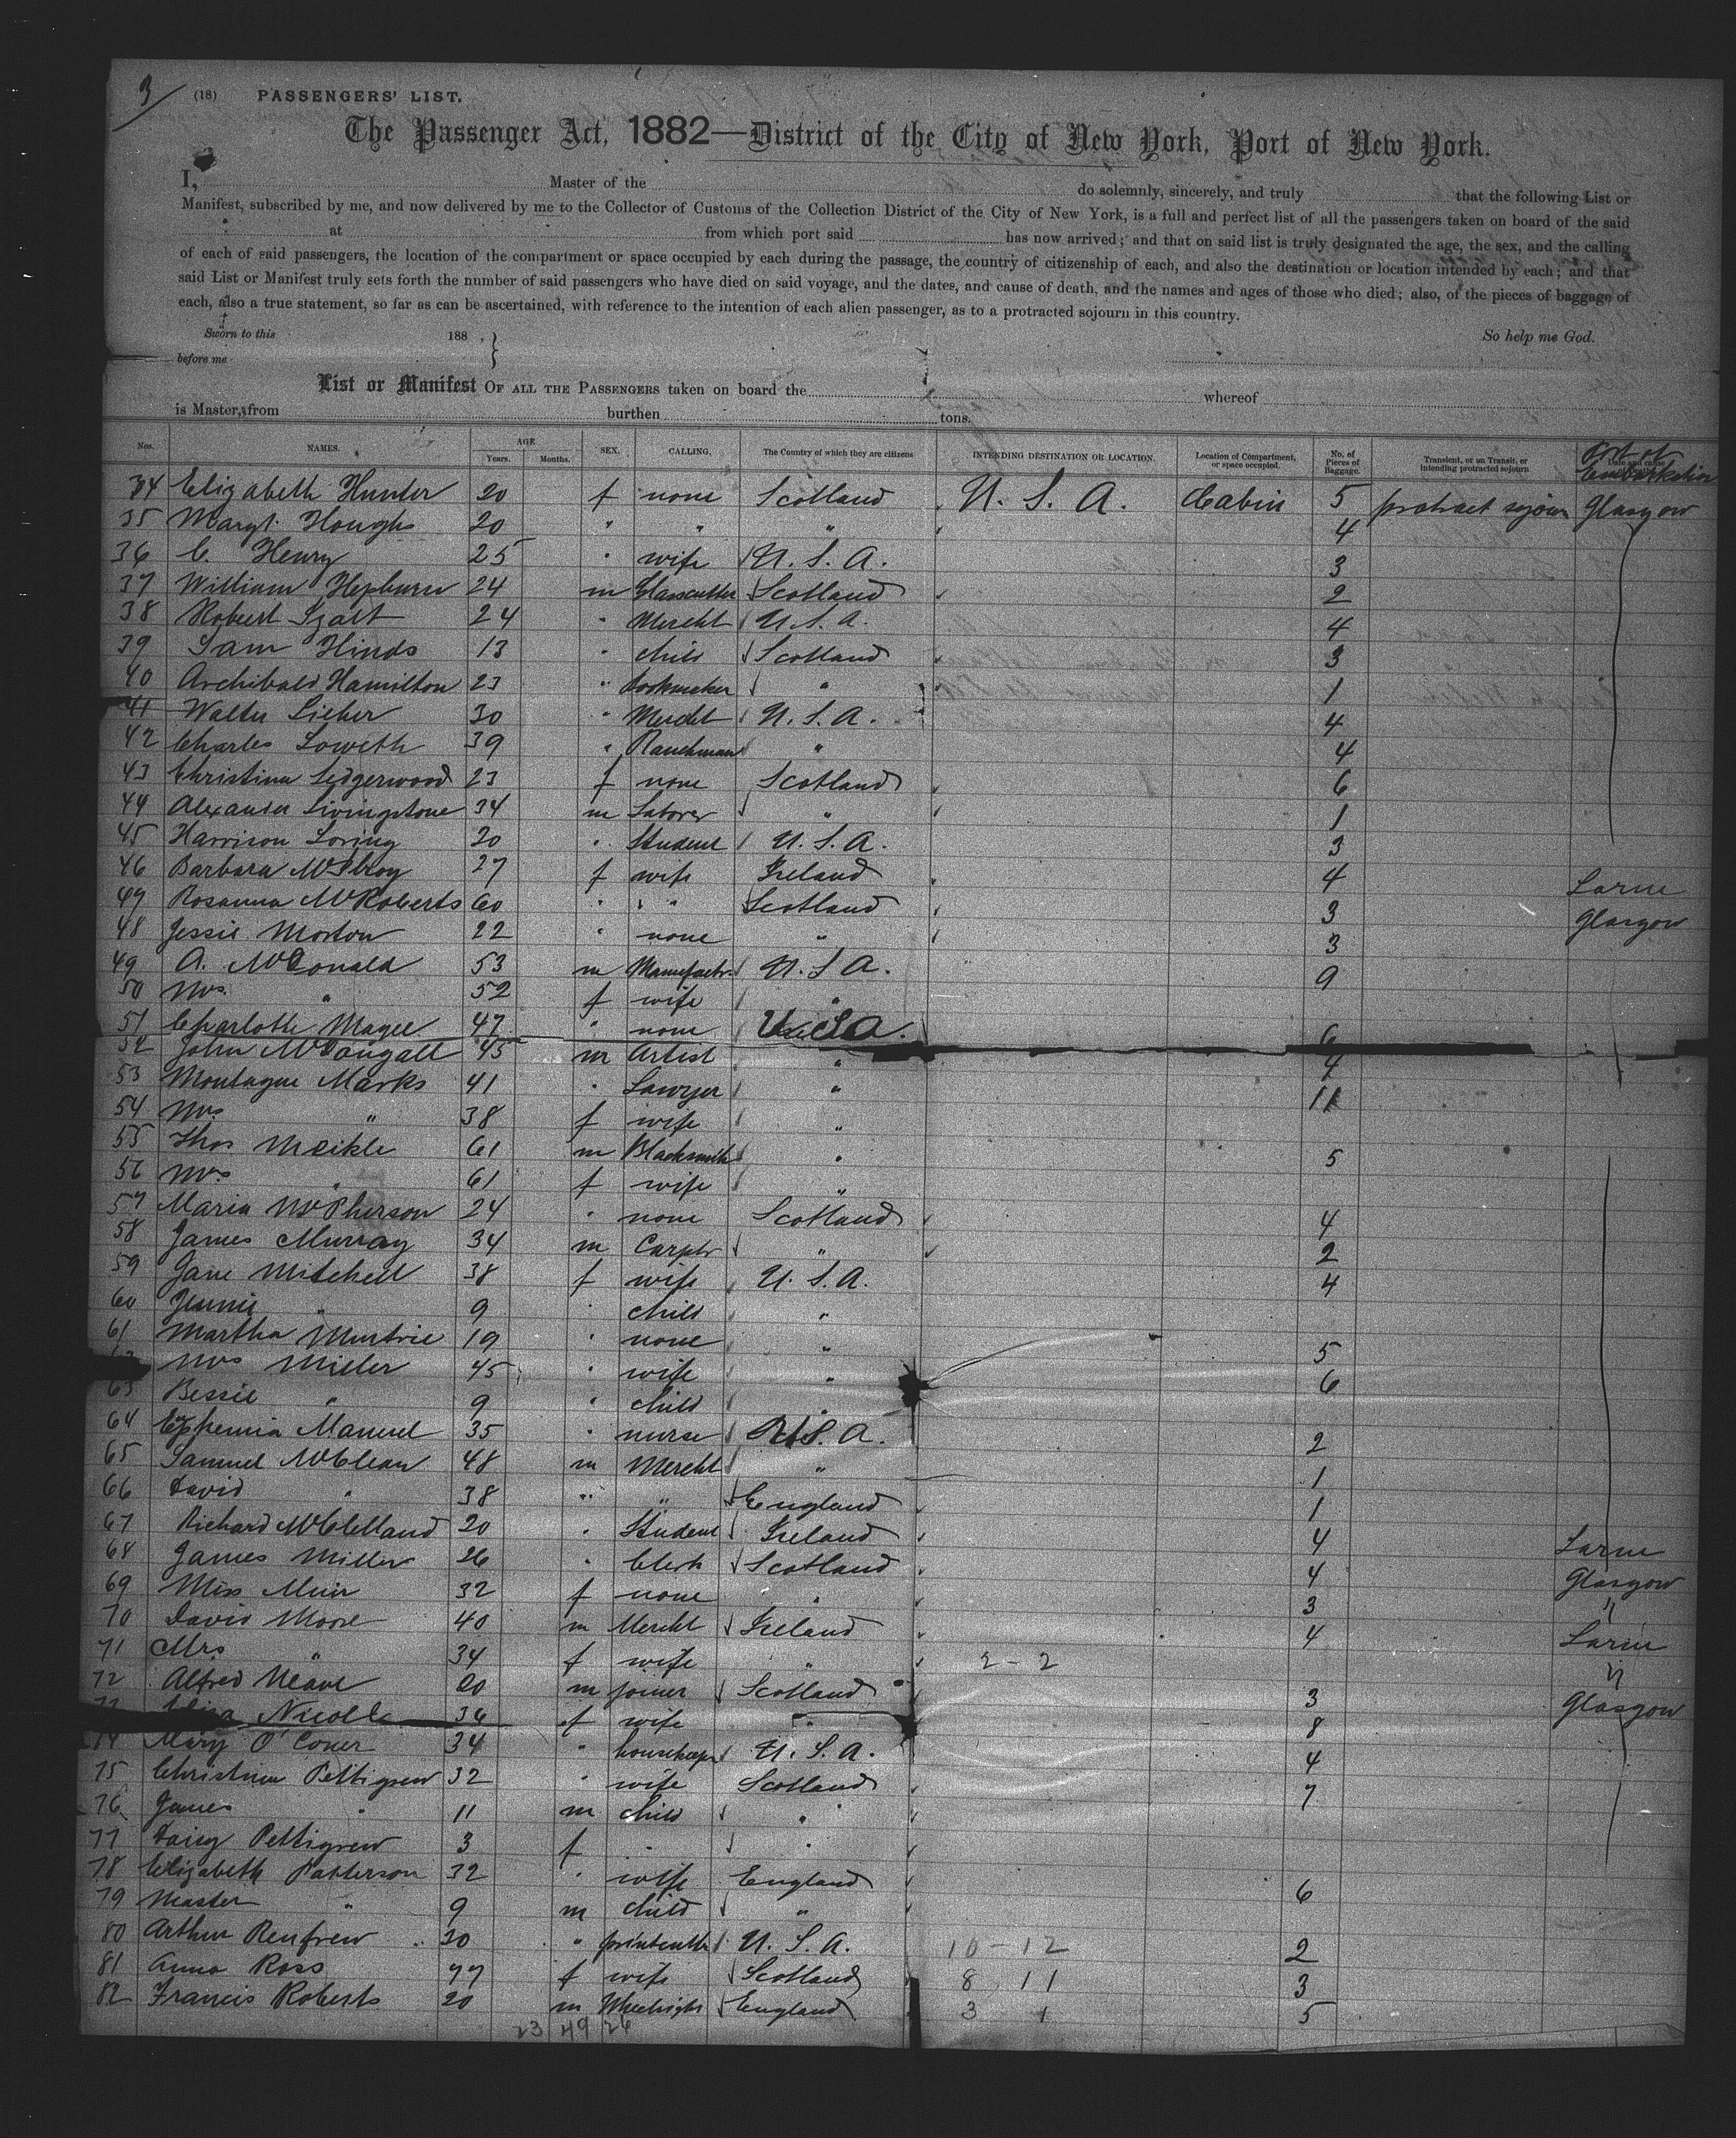 3/ (18) PASSENGERS' LIST.
The Passenger Act, 1882—District of the City of New York, Port of New York.
I, Master of the do solemnly, sincerely, and truly that the following List or
Manifest, subscribed by me, and now delivered by me to the Collector of Customs of the Collection District of the City of New York, is a full and perfect list of all the passengers taken on board of the said
at from which port said has now arrived; and that on said list is truly designated the age, the sex, and the calling
of each of said passengers, the location of the compartment or space occupied by each during the passage, the country of citizenship of each, and also the destination or location intended by each; and that
said List or Manifest truly sets forth the number of said passengers who have died on said voyage, and the dates, and cause of death, and the names and ages of those who died; also, of the pieces of baggage of
each, also a true statement, so far as can be ascertained, with reference to the intention of each alien passenger, as to a protracted sojourn in this country.
Sworn to this 188 . } So help me God.
before me
List or Manifest OF ALL THE PASSENGERS taken on board the whereof
is Master, from burthen tons.
Nos. NAMES. AGE Years. Months. SEX. CALLING. The Country of which they are citizens INTENDING DESTINATION OR LOCATION. Location of Compartment, or space occupied. No. of Pieces of Baggage. Transient, or on Transit, or intending protracted sojourn Port of Embarkation
34 Elizabeth Hunter 20 f none Scotland U. S. A. Cabin 5 protract sojourn Glasgow
35 Margt. Hough 20 " " " 4
36 C. Henry 25 " wife U. S. A. 3
37 William Hepburn 24 m Glasscutter Scotland 2
38 Robert 24 " Mercht U. S. A. 4
39 Sam Hinds 13 " child Scotland 3
40 Archibald Hamilton 23 " " 1
41 Walter Lieber 30 " Mercht U. S. A. 4
42 Charles Loweth 39 " Ranchman " 4
43 Christina Ledgerwood 23 f none Scotland 6
44 Alexander Livingstone 34 m Laborer " 1
45 Harrison Loring 20 " Student U. S. A. 3
46 Barbara McIlroy 27 f wife Ireland 4 Larne
47 Rosanna McRoberts 60 " " Scotland 3 Glasgow
48 Jessie Morton 22 " none " 3
49 A. McDonald 53 m Manufactr. U. S. A. 9
50 Mrs " 52 f wife "
51 Charlotte Magee 47 " none U. S. A. 6
52 John McDougall 45 m Artist " 4
53 Montague Marks 41 " Lawyer " 11
54 Mrs " 38 f wife "
55 Thos Meikle 61 m Blacksmith " 5
56 Mrs " 61 f wife "
57 Maria McPherson 24 " none Scotland 4
58 James Murray 34 m Carptr " 2
59 Jane Mitchell 38 f wife U. S. A. 4
60 Jennie " 9 " child "
61 Martha Murtrie 19 " none " 5
Mrs Miller 45 " wife " 6
63 Bessie " 9 " child "
64 Euphemia Manuel 35 " nurse U. S. A. 2
65 Samuel McClean 48 m Mercht " 1
66 David " 38 " " England 1
67 Richard McClelland 20 " Student Ireland 4 Larne
68 James Miller 26 " Clerk Scotland 4 Glasgow
69 Miss Muir 32 f none " 3 "
70 David Moore 40 m Mercht Ireland 4 Larne
71 Mrs " 34 f wife " 2 - 2 "
72 Alfred Neave 20 m joiner Scotland 3 Glasgow
Nicoll 36 f wife " 8
74 Mary O'Coner 34 " housekeeper U. S. A. 4
75 Christina Pettigrew 32 " wife Scotland 7
76 James " 11 m child "
77 Daisy Pettigrew 3 f " "
78 Elizabeth Patterson 32 " wife England 6
79 Master " 9 m child "
80 Arthur Renfrew 30 " U. S. A. 10 - 12 2
81 Anna Ross 77 f wife Scotland 8 11 3
82 Francis Roberts 20 m England 3 1 5
23 49 26